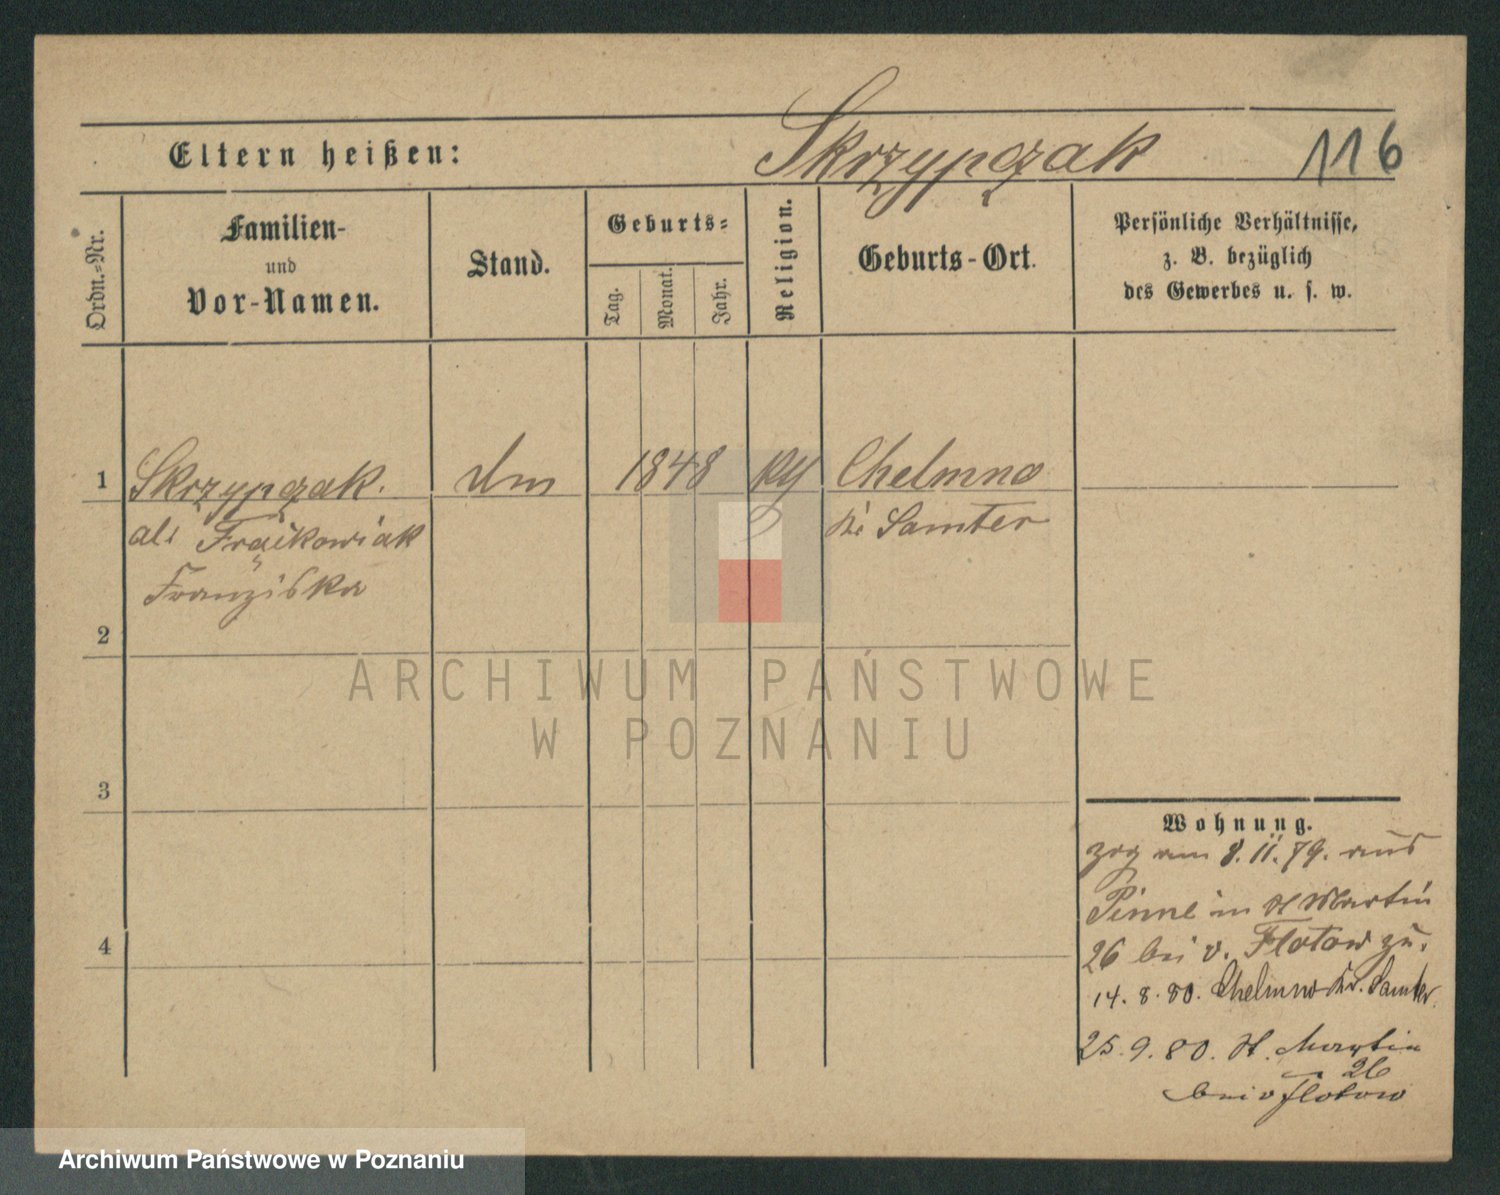 Skrzypczak 116
Eltern heißen:
Ordn.-Nr.
Familien-
und
Vor-Namen.
Stand.
Geburts-
Tag.
Monat.
Jahr.
Religion.
Geburts-Ort.
Persönliche Verhältnisse,
z. B. bezüglich
des Gewerbes u. s. w.
1 Skrzypczak. 1848 Chelmno
als Frąckowiak Samter
Franziska
2
3
4
Wohnung.
zog am 8.11.79. aus
Pinne in St Martin
26 bei v. Flotow zu.
14.8.80. Chelmno Kr. Samter.
25.9.80. St. Martin
26
bei v Flotow
ARCHIWUM PAŃSTWOWE
W POZNANIU
Archiwum Państwowe w Poznaniu